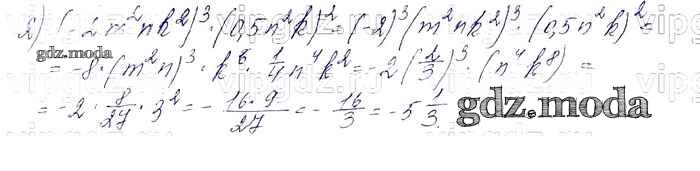 2) (-2m²nk²)³ · (0,5n²k)² = (-2)³ (m²nk²)³ · (0,5n²k)² =
= -8 · (m²n)³ · k⁶ · 1/4 n⁴k² = -2 (2/3)³ · (n⁴k⁸) =
= -2 · 8/27 · 3² = - 16·9/27 = - 16/3 = -5 1/3.
gdz.moda
gdz.moda